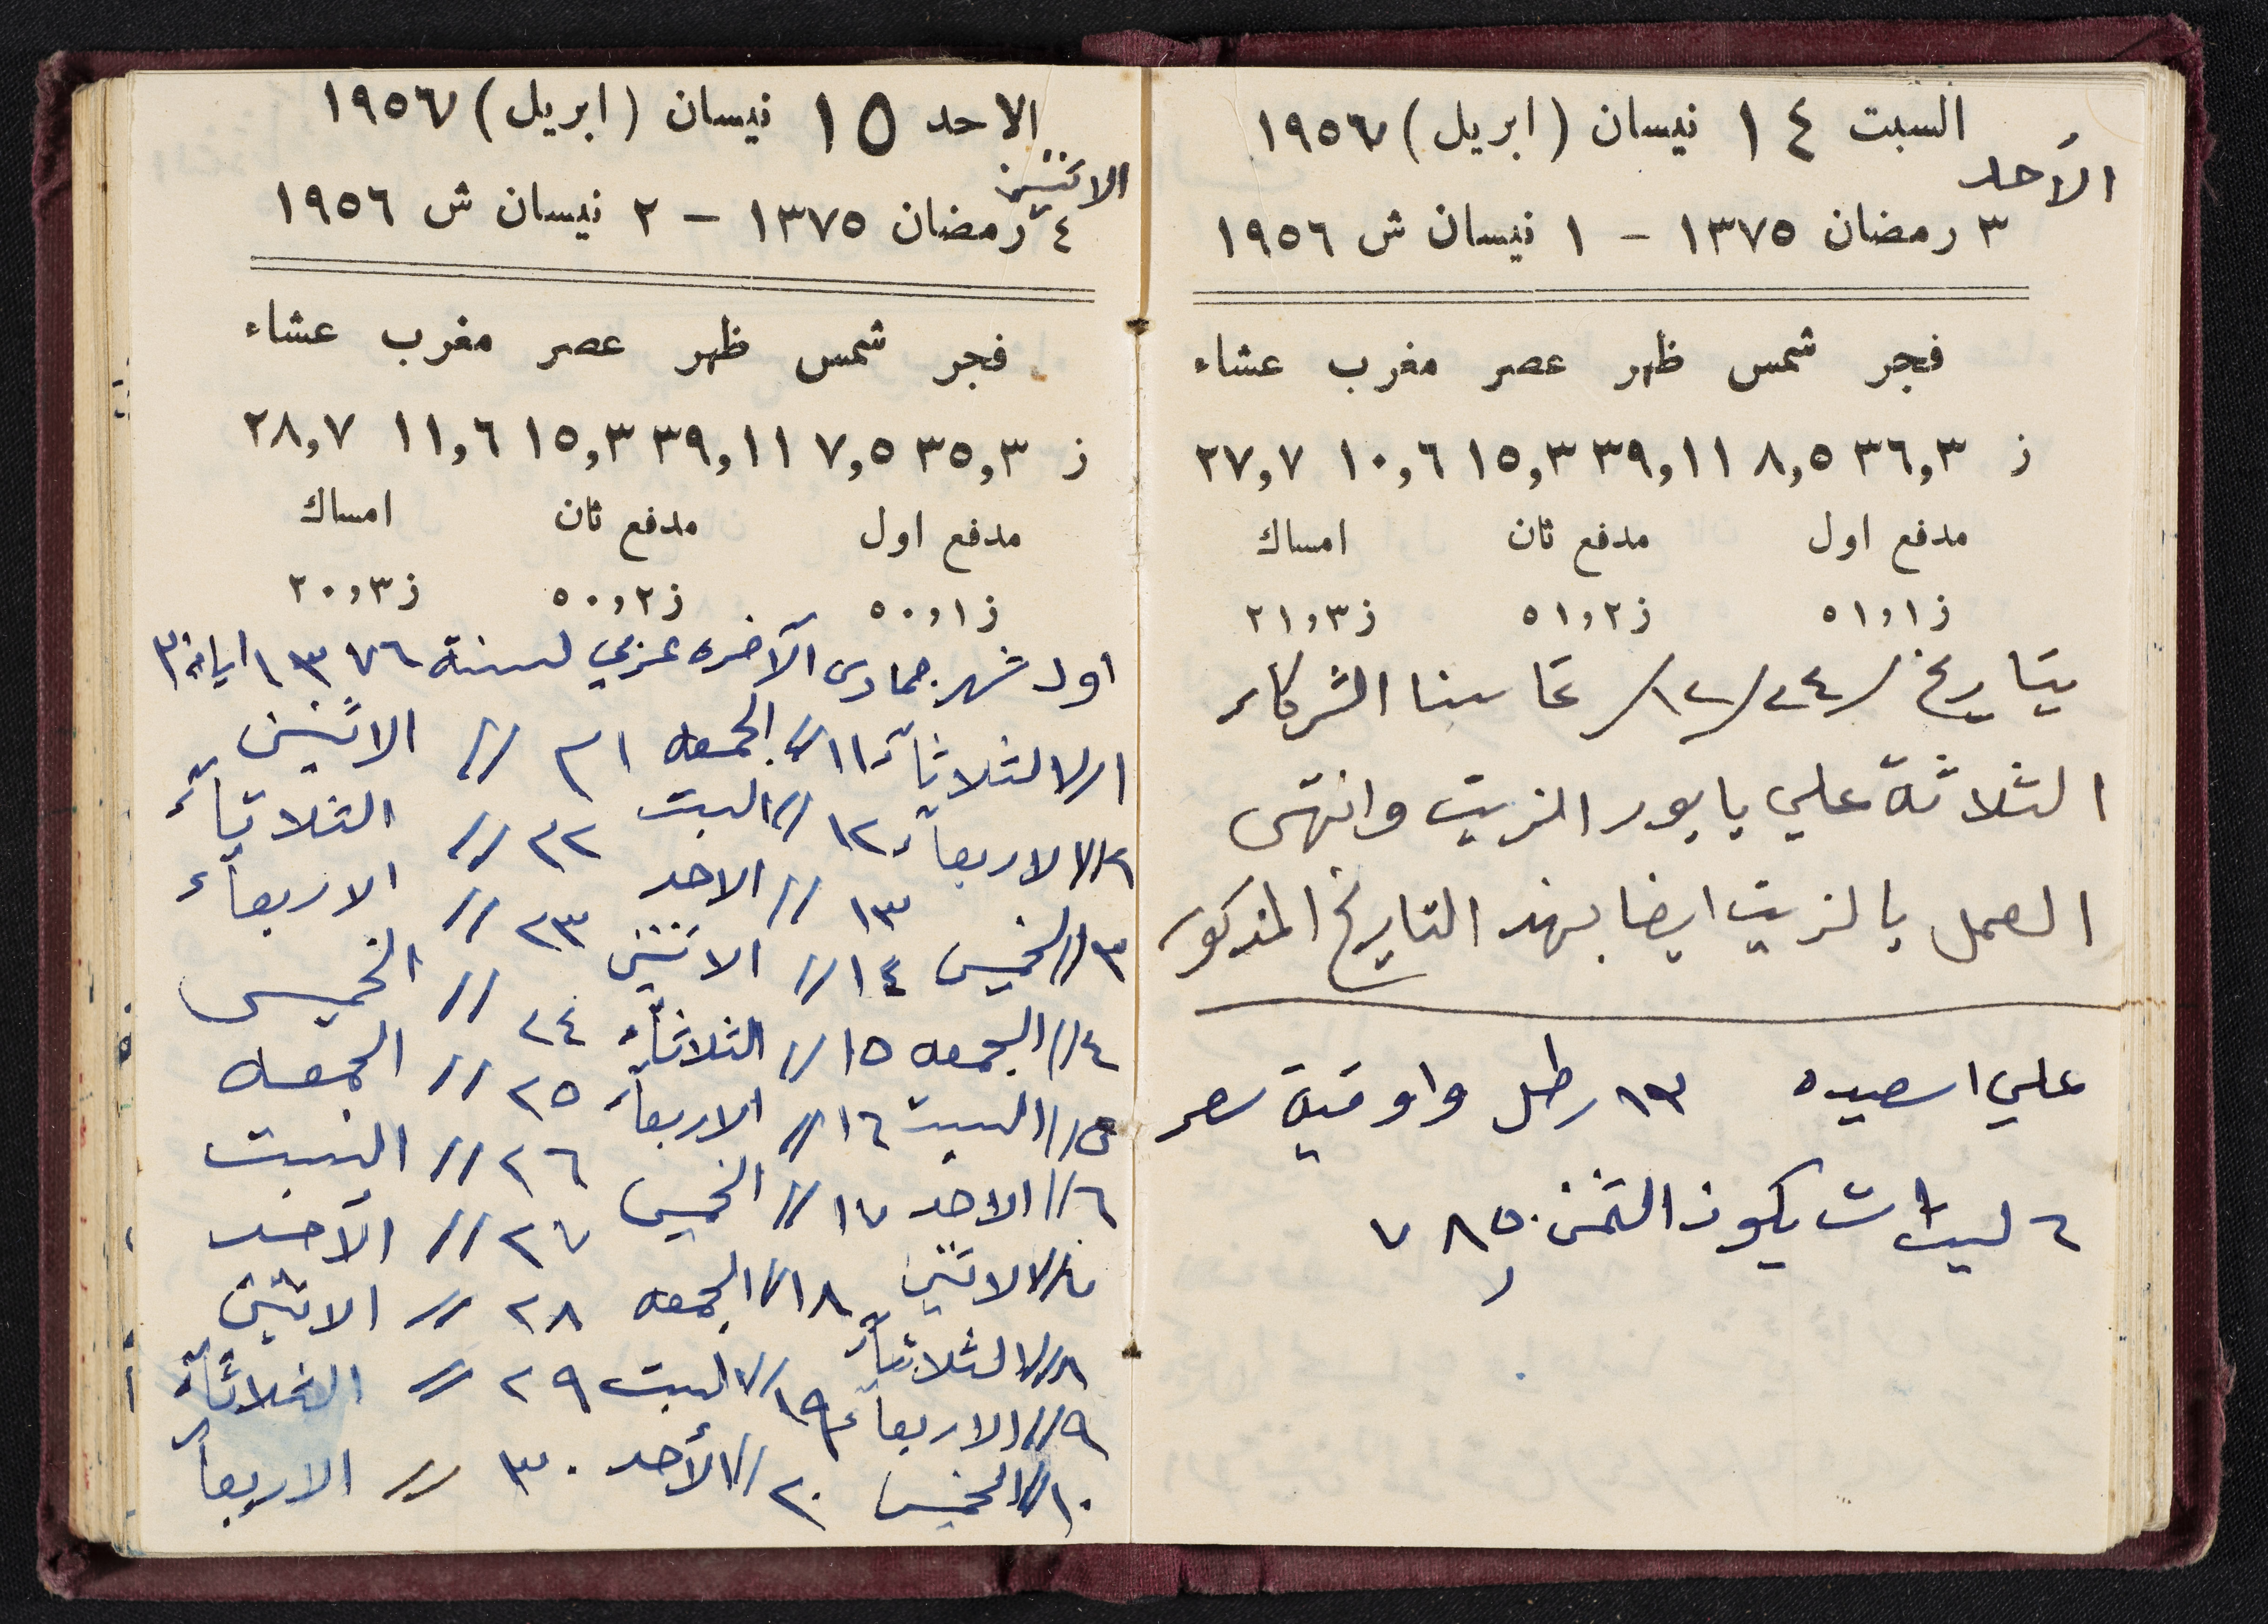 السبت ١٤ نيسان (ابريل) ١٩٥٦٧
الأحد
٣ رمضان ١٣٧٥ - ١ نيسان ش ١٩٥٦
فجر شمس ظهر عصر مغرب عشاء
ز ٣٦,٣ ٨,٥ ٣٩,١١ ١٥,٣ ١٠,٦ ٢٧,٧
مدفع اول مدفع ثان امساك
ز ٥١,١ ز ٥١,٢ ز ٢١,٣
بتاريخ /٢٤/١٢/ تحاسبنا الشركاء
الثلاثة علي بابور الزيت وانتهى
العمل بالزيت ايضا بهذ التاريخ المذكور
علي اسعيده ١٣ رطل واوقية سعر
٦ ليرات يكون الثمن ٧٨٥٠
الاحد ١٥ نيسان (ابريل) ١٩٥٦٧
الاثنين
٤ رمضان ١٣٧٥ - ٢ نيسان ش ١٩٥٦
فجر شمس ظهر عصر مغرب عشاء
ز ٣٥,٣ ٧,٥ ٣٩,١١ ١٥,٣ ١١,٦ ٢٨,٧
مدفع اول مدفع ثان امساك
ز ٥٠,١ ز ٥٠,٢ ز ٢٠,٣
اول شهر جمادى الآخره عربي لسنة ١٣٧٦ ايامه ٣٠
١// الثلاثاء ١١// الجمعه ٢١ // الاثنين
٢// الاربعاء ١٢// السبت ٢٢ // الثلاثاء
٣// الخميس ١٣ // الاحد ٢٣ // الاربعاء
٤// الجمعه ١٤ // الاثنين ٢٤ // الخميس
٥// السبت ١٥ // الثلاثاء ٢٥ // الجمعه
٦// الاحد ١٦ // الاربعاء ٢٦ // السبت
٧// الاثنين ١٧ // الخميس ٢٧ // الأحد
٨// الثلاثاء ١٨// الجمعه ٢٨ // الاثنين
٩// الاربعاء ١٩// السبت ٢٩ // الثلاثاء
١٠// الخميس ٢٠ // الأحد ٣٠ // الاربعاء